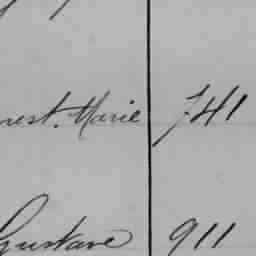 rest. Marie 741
Gustave 911